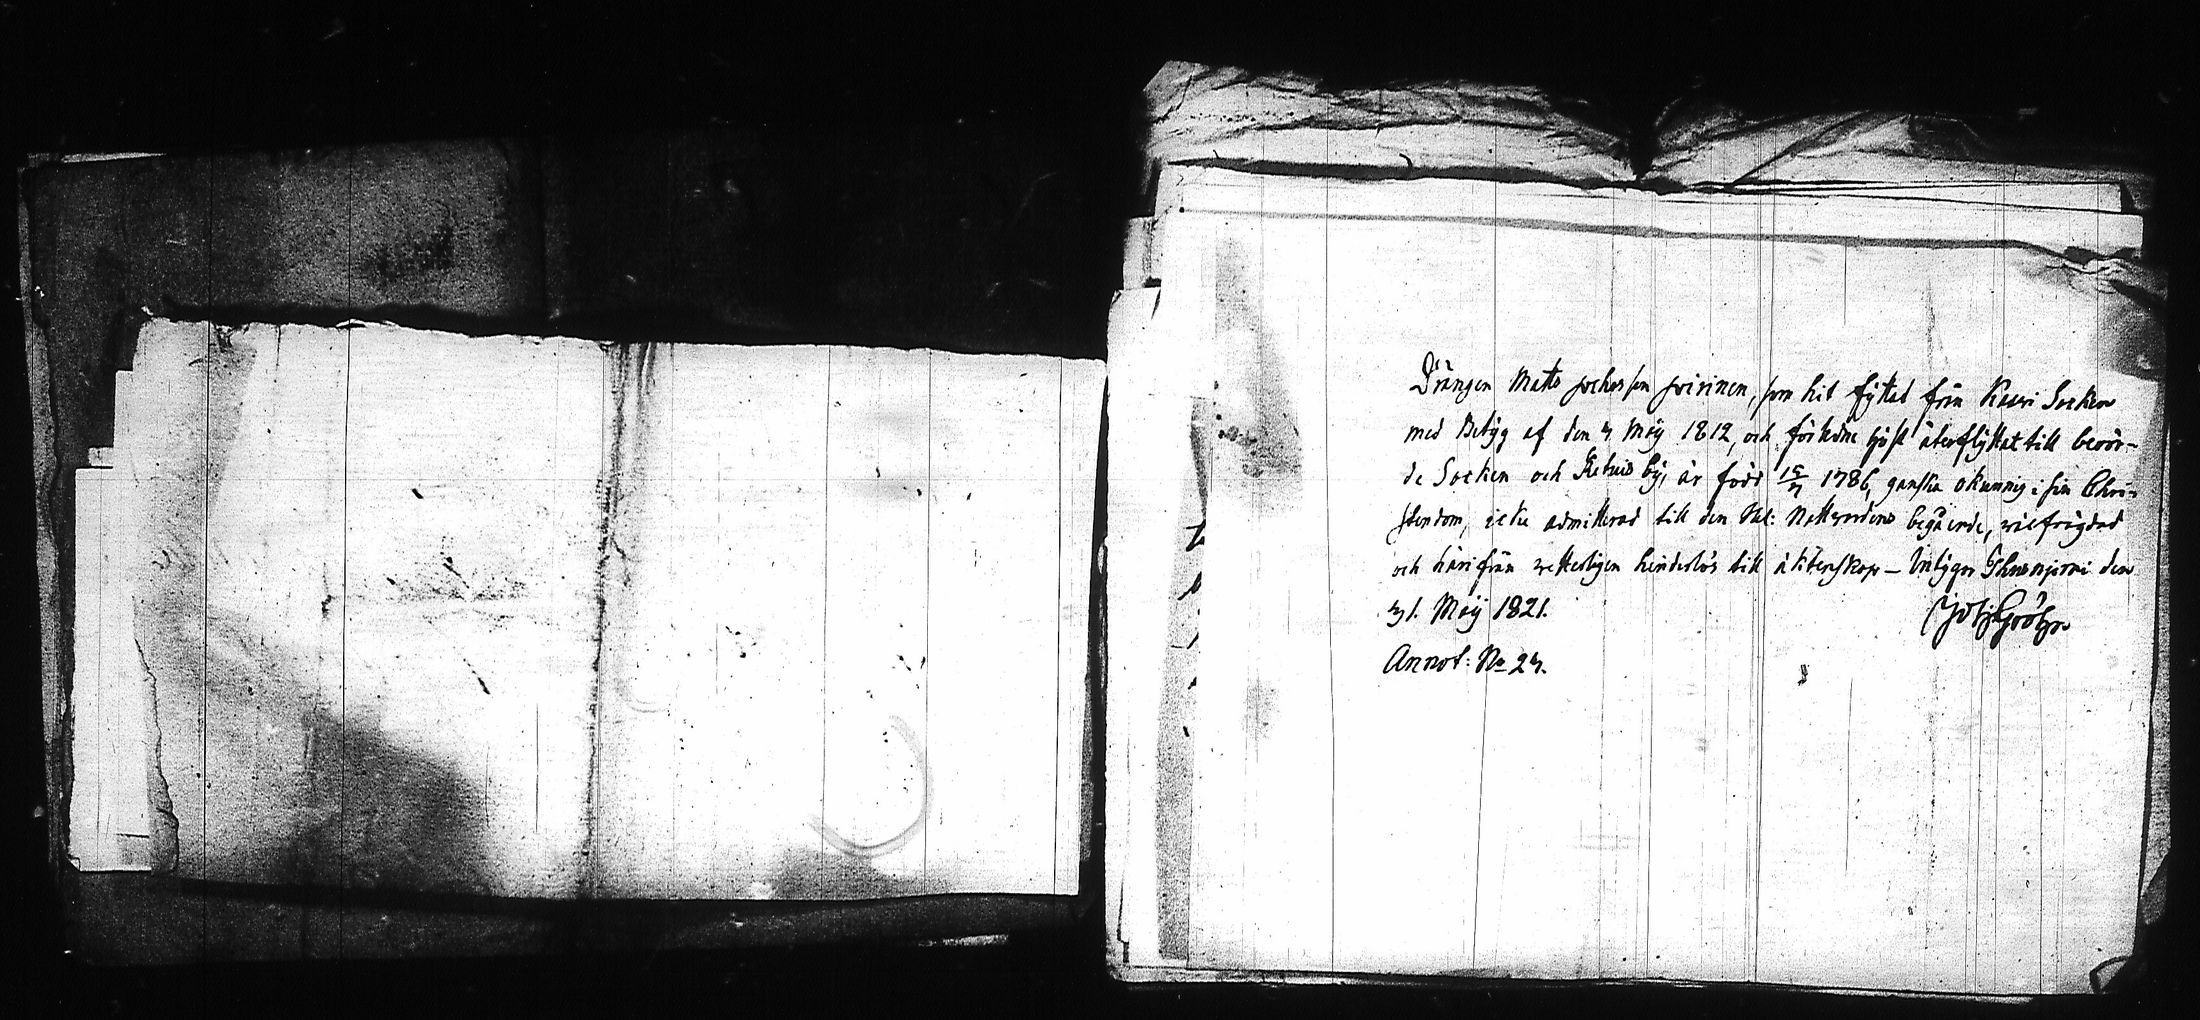 Drängen Matts Jochosson Joirinen, som hit flyttat från Kaavi Socken
med Betyg af den 3 Maij 1812, och förledne höst återflyttat till berör-
de Socken och by, är född 15/7 1786, ganska okunnig i sin Chri-
stendom, icke admitterad till den Hel: Nattvardens begående, wälfrägdad
och härifrån vetterligen hinderlös till ächtenskap – Intygar den
31. Maij 1821.
Annot: No 23.